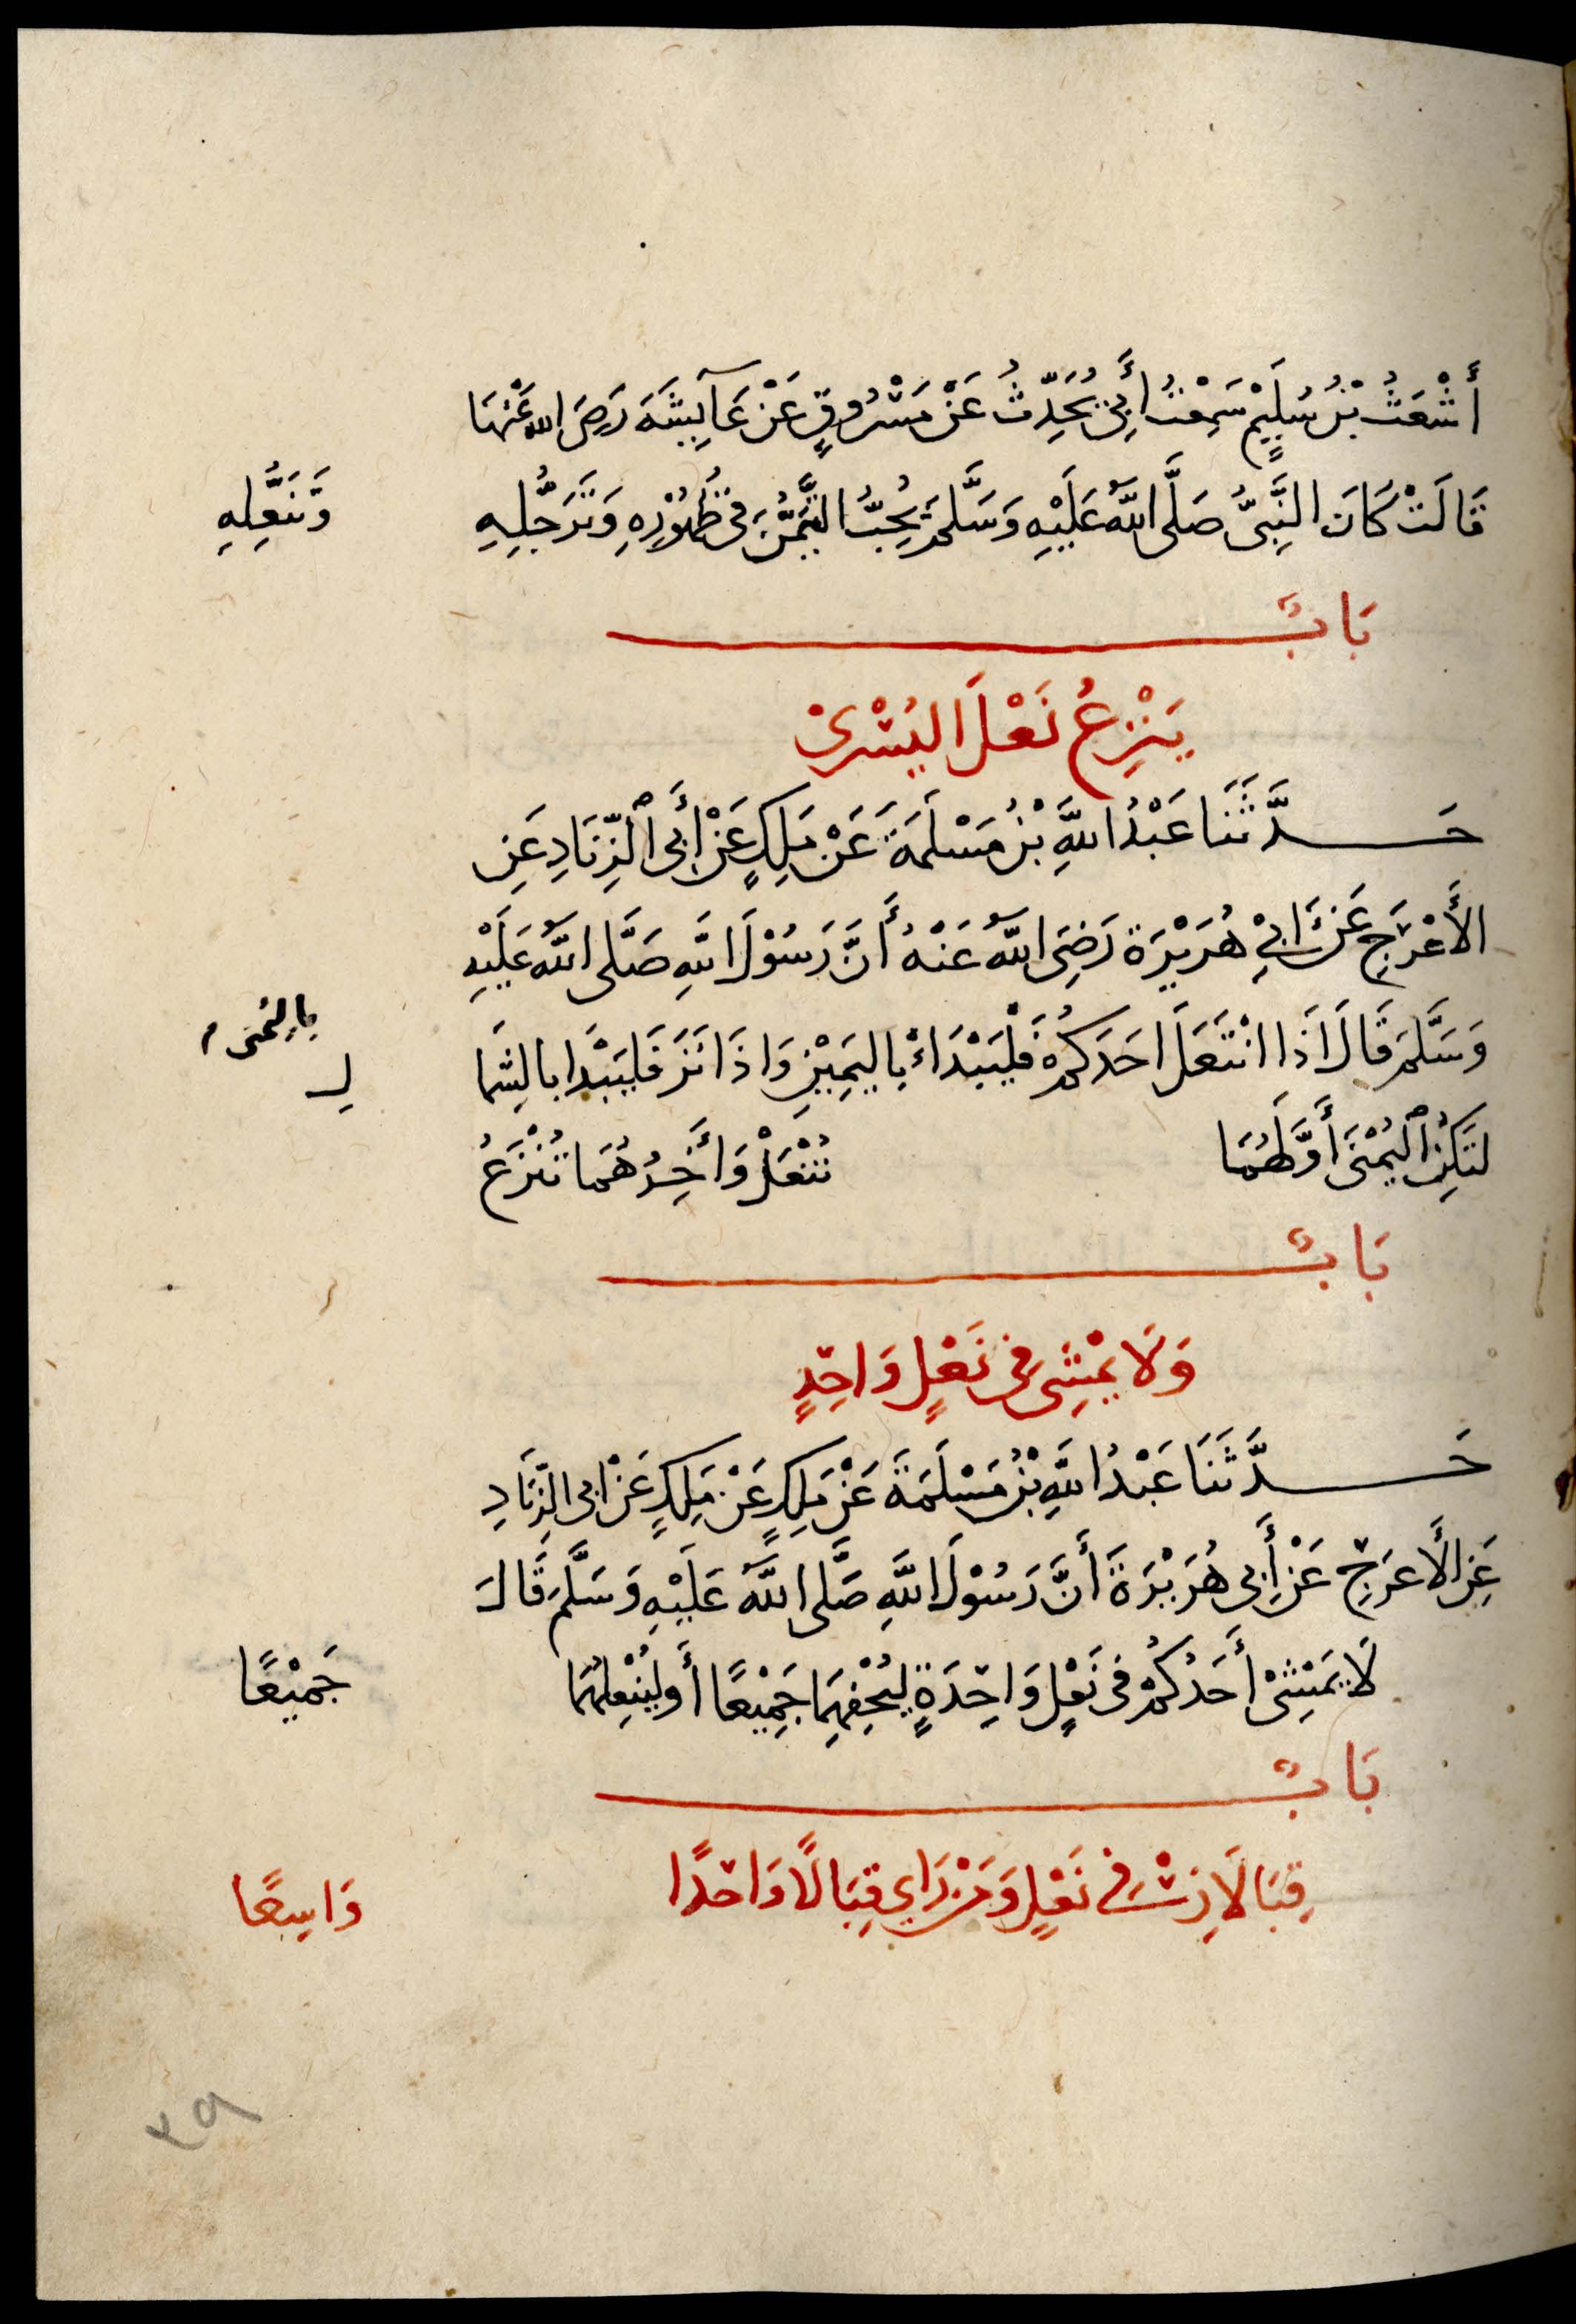 أَشْعَثُ بْنُ سُلَيْمٍ سَمِعْتُ أَبِي يُحَدِّثُ عَنْ مَسْرُوقٍ عَنْ عَآيِشَةَ رَضِيَ اللهُ عَنْهَا
قَالَتْ كَانَ النَّبِيُّ صَلَّى اللَّهُ عَلَيْهِ وَسَلَّمَ يُحِبُّ التَّيَمُّنَ فِي طُهُوْرِهِ وَتَرَجُّلِهِ
وَتَنَعُّلِهِ
بَابٌ
يَنْزِعُ نَعْلَ اليُسْرَىْ
حَدَّثَنَا عَبْدُ اللَّهِ بْنُ مَسْلَمَةَ عَنْ مَلِكٍ عَنْ أَبِى ٱلزِّنَادِ عَنِ
الأَعْرَجِ عَنْ أَبِيْ هُرَيْرَة رَضِيَ اللَّهُ عَنْهُ أَنَّ رَسُوْلَ اللَّهِ صَلَّى اللَّهُ عَلَيْهِ
وَسَلَّمَ قَالَ اَذَا انْتَعَلَ احَدَكُمْ فَلْيَبْدَاءْ بِاليَمِيْنِ وَاذَا نَزَعَ فَليَبْدَا بالشِّما
لِ
بِاليُمْنى
لتَكِنُ ٱليُمْنَى أَوَّلَهُمَا تُنْعَلْ وَأَخِرُهُمَا تُنْزَعُ
بَابٌ
وَلَا يَمْشِى فِى نَعْلٍ وَاحِدٍ
حَدَّثَنَا عَبْدُ اللَّهِ بْنُ مَسْلَمَةَ عَنْ مَلِكٍ عَنْ مَلِكٍ عَنْ ابِى الزِّنَادِ
عَنِ الأَعرَجِ عَنْ أَبِى هُرَيْرَةَ أَنَّ رَسُوْلَ اللَّهِ صَلَّى اللَّهُ عَلَيْهِ وَسَلَّمَ قَالَ
لَا يَمْشِىْ أَحَدُكُمْ فِى نَعْلٍ وَاحِدَةٍ لِيُحْفِهِمَا جَمِيْعًا أَو لِيُنْعِلْهُمَا
جَمِيْعًا
بَابٌ
قِبَالَانِ فِى نَعْلٍ وَمَنْ رَاي قِبَالًا وَاحدًا
وَاسِعًا
٢٩